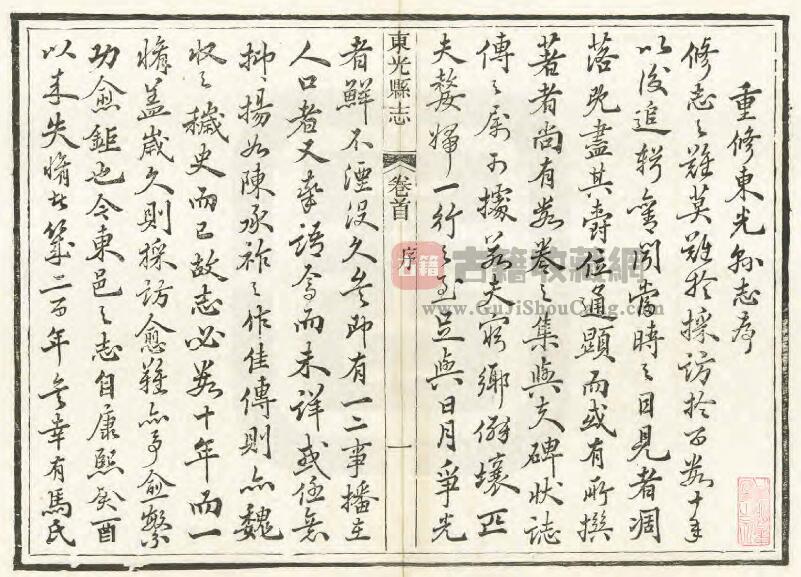 重修東光縣志序
修志之難莫難於採訪於百數十年
以後追輯舊聞當時之目見者凋
落既盡其爵位通顯而或有所撰
著者尚有數卷之集與夫碑狀誌
傳之屬可據若夫窮鄉僻壤匹
夫嫠婦一行之至足與日月爭光
東光縣志
卷首
序
一
者鮮不湮没久矣即有一二事播在
人口者又崋語焉而未詳或任意
抑揚如陳承祚之作佳傳則亦魏
收之穢史而已故志必數十年而一
脩蓋歲久則採訪愈難亦事愈繁
功愈鉅也今東邑之志自康熙癸酉
以來失脩者幾二百年矣幸有馬氏
古籍收藏網
www.GuJiShouCang.com